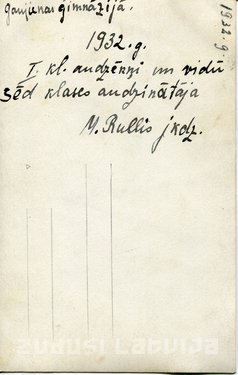 Gaujienas ģimnāzijā.
1932. g.
1932. g.
I. kl. audzēkņi un vidū
sēd klases audzinātāja
M. Rullis jkdz.
ZUDUSĪ LATVIJA